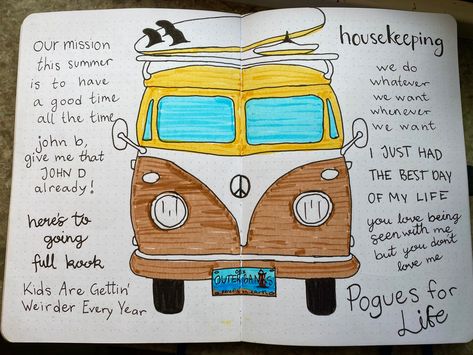 Our mission
this summer
is to have
a good time
all the time
john b,
give me that
JOHN D
already!
here's to
going
full kook
Kids Are Gettin'
Weirder Every Year
OBX
OUTER BANKS
housekeeping
we do
whatever
we want
whenever
we want
I JUST HAD
THE BEST DAY
OF MY LIFE
you love being
seen with me
but you dont
love me
Pogues for
Life